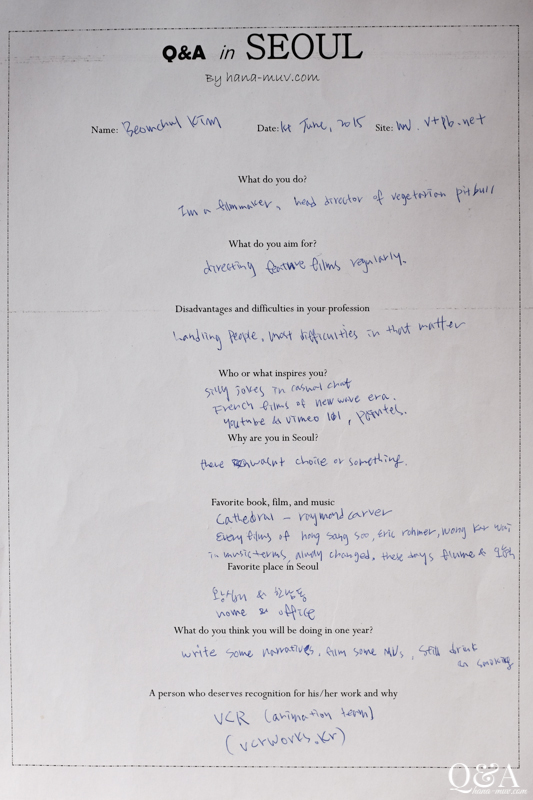 Q&A in SEOUL
By hana-muv.com
Name: Beomchul Kim Date: 1st June, 2015 Site: vtpb.net
What do you do?
I'm a filmmaker, head director of vegetarian pitbull
What do you aim for?
directing feature films regularly.
Disadvantages and difficulties in your profession
handling people, most difficulties in that matter
Who or what inspires you?
silly jokes in casual chat
French films of new wave era.
Youtube & Vimeo
Why are you in Seoul?
there wasnt choice or something.
Favorite book, film, and music
Cathedral - raymond carver
Every films of hong sang soo, Eric rohmer, Wong Kar Wai
in music terms, changed, these days flume &
Favorite place in Seoul
& 한남동
home & office
What do you think you will be doing in one year?
write some narratives, film some MVs, still drink
smoking
A person who deserves recognition for his/her work and why
VCR (animation team)
(vcrworks.kr)
Q&A
hana-muv.com